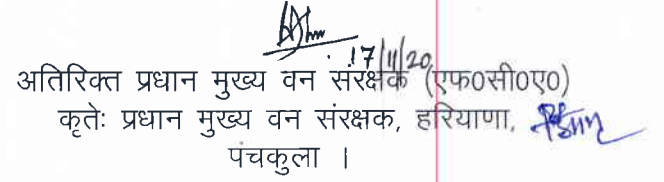 17/11/20
अतिरिक्त प्रधान मुख्य वन संरक्षक (एफ०सी०ए०)
कृतेः प्रधान मुख्य वन संरक्षक, हरियाणा,
पंचकुला ।